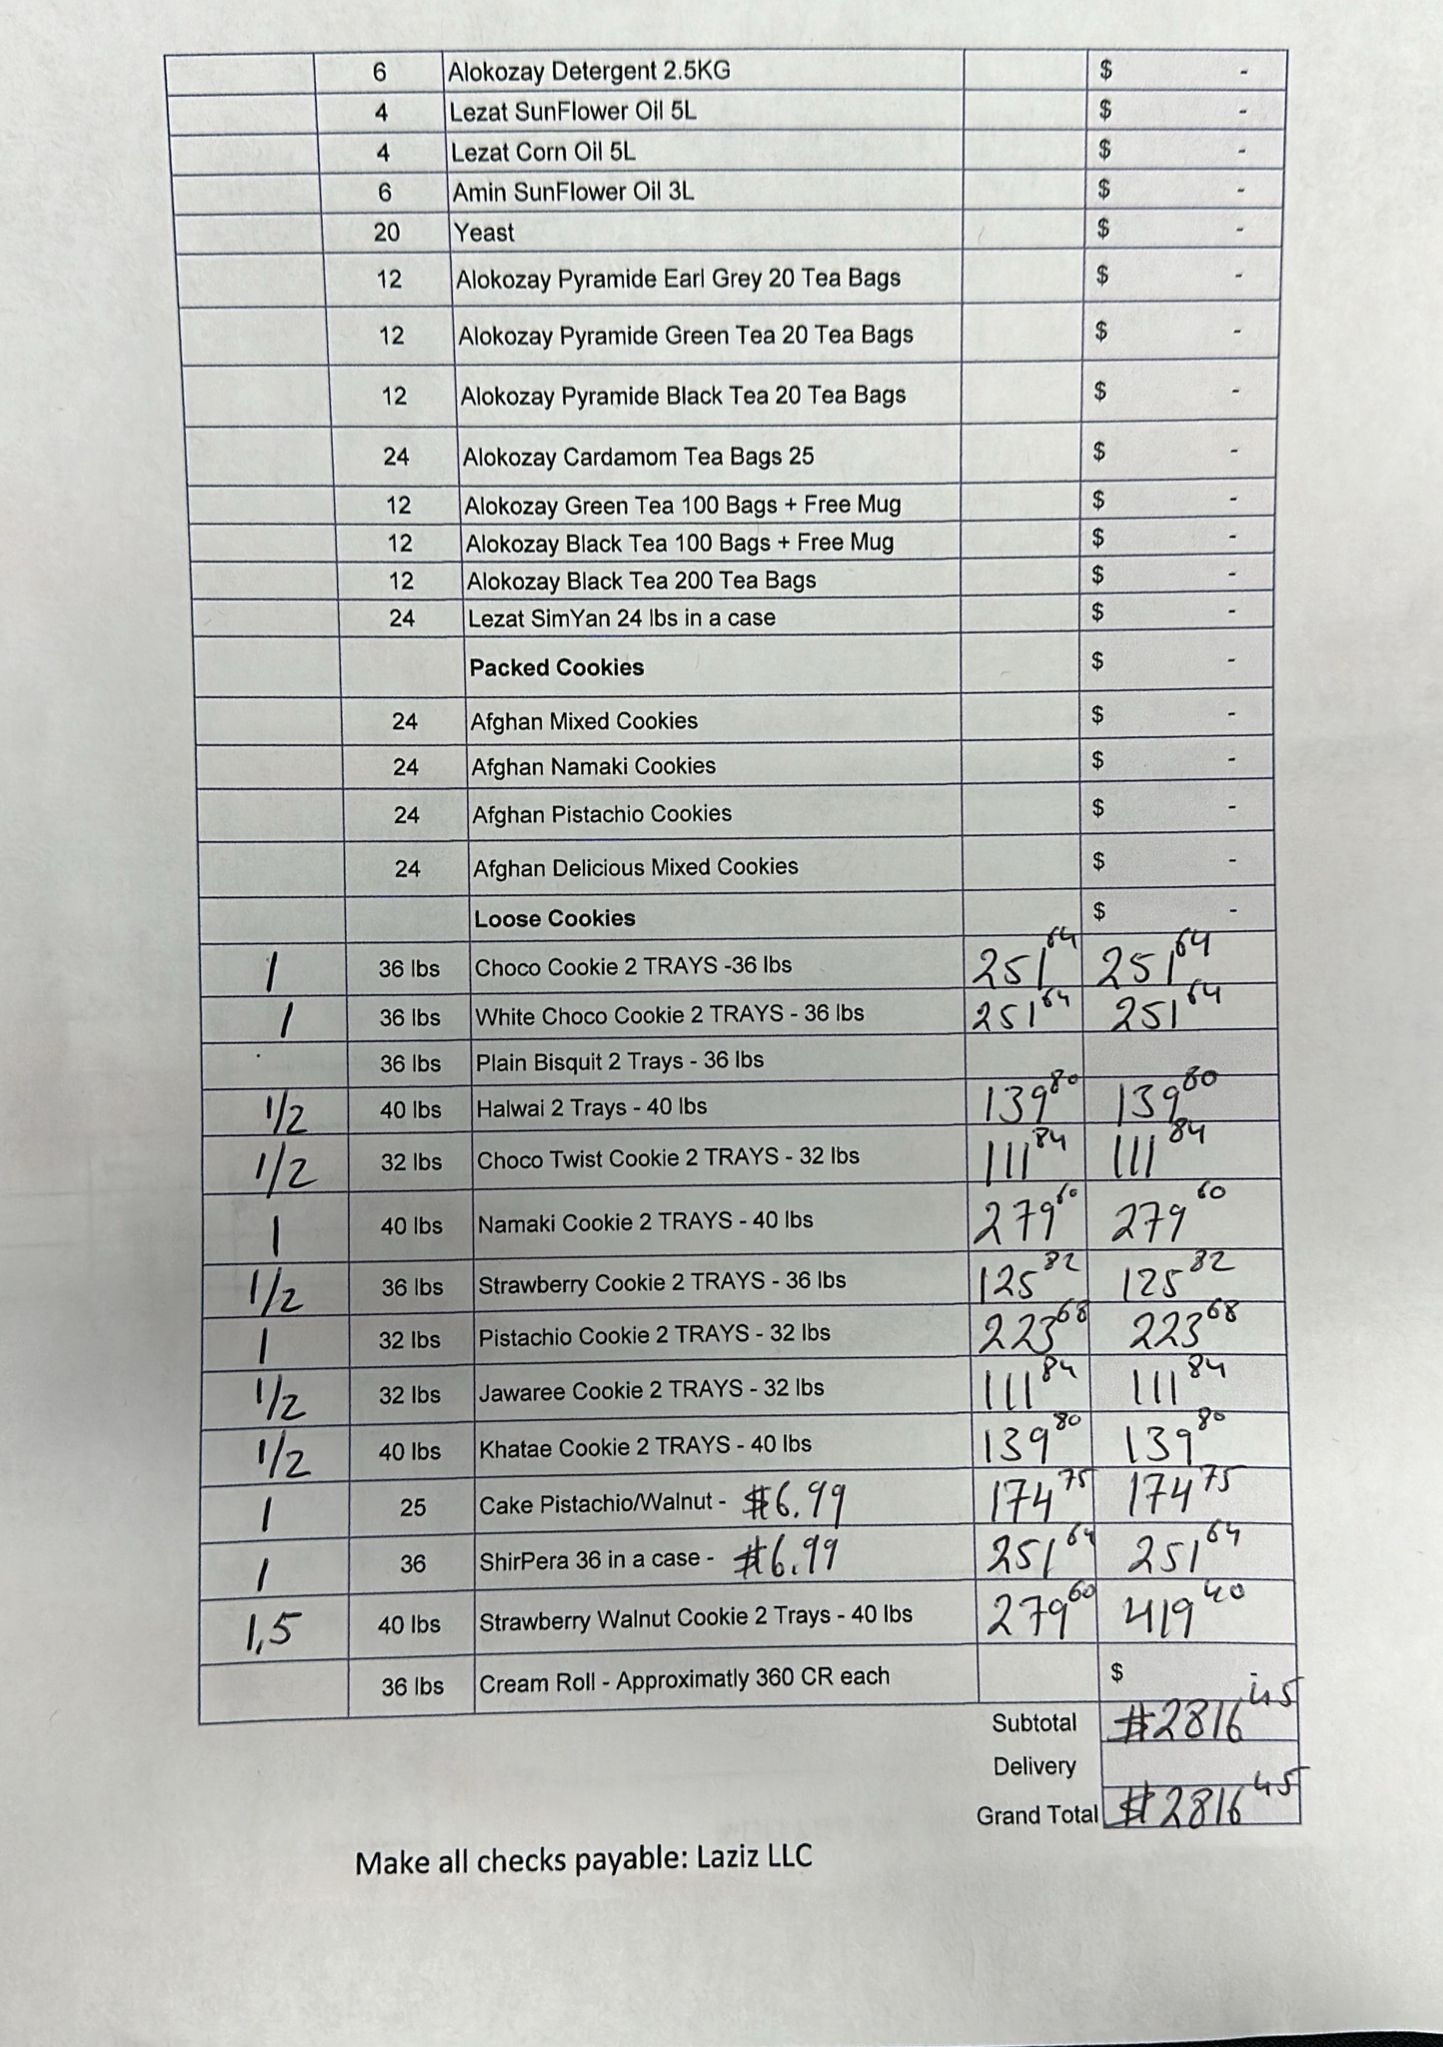 6 Alokozay Detergent 2.5KG $ -
4 Lezat SunFlower Oil 5L $ -
4 Lezat Corn Oil 5L $ -
6 Amin SunFlower Oil 3L $ -
20 Yeast $ -
12 Alokozay Pyramide Earl Grey 20 Tea Bags $ -
12 Alokozay Pyramide Green Tea 20 Tea Bags $ -
12 Alokozay Pyramide Black Tea 20 Tea Bags $ -
24 Alokozay Cardamom Tea Bags 25 $ -
12 Alokozay Green Tea 100 Bags + Free Mug $ -
12 Alokozay Black Tea 100 Bags + Free Mug $ -
12 Alokozay Black Tea 200 Tea Bags $ -
24 Lezat SimYan 24 lbs in a case $ -
Packed Cookies $ -
24 Afghan Mixed Cookies $ -
24 Afghan Namaki Cookies $ -
24 Afghan Pistachio Cookies $ -
24 Afghan Delicious Mixed Cookies $ -
Loose Cookies $ -
1 36 lbs Choco Cookie 2 TRAYS -36 lbs 251 64 251 64
1 36 lbs White Choco Cookie 2 TRAYS - 36 lbs 251 64 251 64
36 lbs Plain Bisquit 2 Trays - 36 lbs
1/2 40 lbs Halwai 2 Trays - 40 lbs 139 80 139 80
1/2 32 lbs Choco Twist Cookie 2 TRAYS - 32 lbs 111 84 111 84
1 40 lbs Namaki Cookie 2 TRAYS - 40 lbs 279 60 279 60
1/2 36 lbs Strawberry Cookie 2 TRAYS - 36 lbs 125 82 125 82
1 32 lbs Pistachio Cookie 2 TRAYS - 32 lbs 223 68 223 68
1/2 32 lbs Jawaree Cookie 2 TRAYS - 32 lbs 111 84 111 84
1/2 40 lbs Khatae Cookie 2 TRAYS - 40 lbs 139 80 139 80
1 25 Cake Pistachio/Walnut - $6.99 174 75 174 75
1 36 ShirPera 36 in a case - $6.99 251 64 251 64
1,5 40 lbs Strawberry Walnut Cookie 2 Trays - 40 lbs 279 60 419 40
36 lbs Cream Roll - Approximatly 360 CR each $
Subtotal $2816 45
Delivery
Grand Total $2816 45
Make all checks payable: Laziz LLC